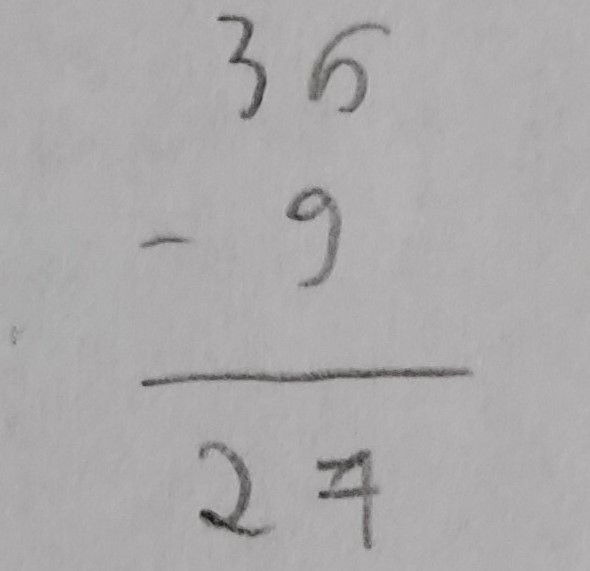 36
- 9
27